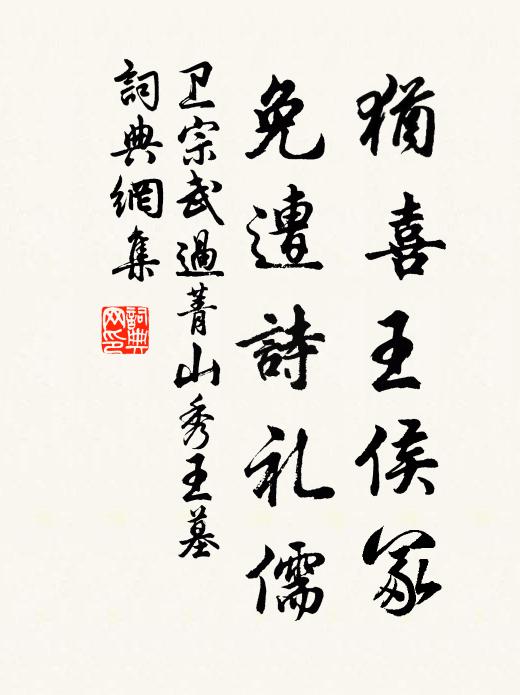 猶喜王侯冢
免遭詩礼儒
卫宗武過菁山秀王墓
詞典網集
詞典网印